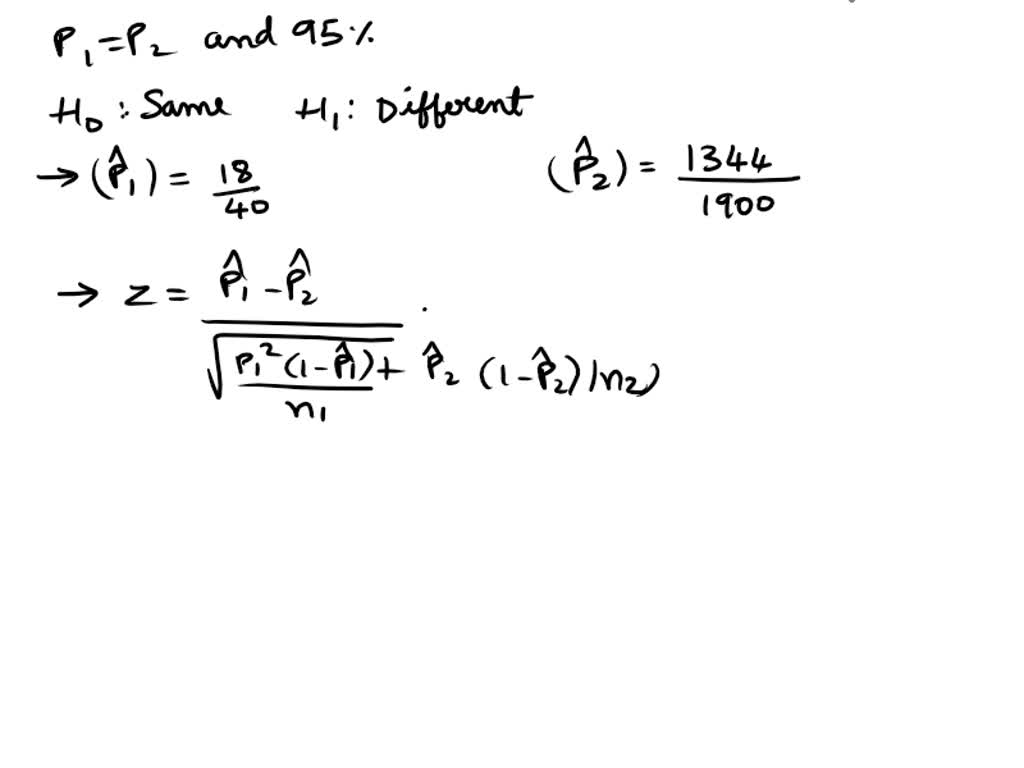 P₁=P₂ and 95%
H₀ : Same H₁ : Different
→ (P̂₁) = 18/40 (P̂₂) = 1344/1900
→ z = P̂₁ - P̂₂ / √P₁²(1-P̂₁)/n₁ + P̂₂ (1-P̂₂)/n₂)